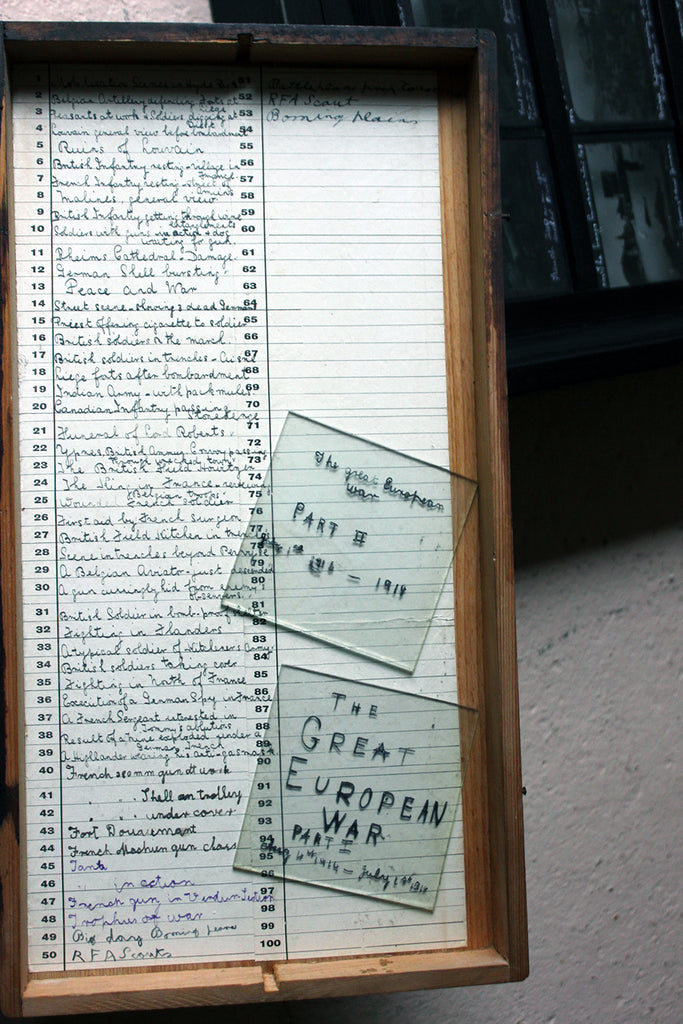 1 Mobilization Scenes in Hyde Park
2 Belgian Artillery defending forts at Liege
3 Peasants at work & Soldiers digging at Diest
4 Louvain general view before bombardment
5 Ruins of Louvain
6 British Infantry resting - village in France
7 French Infantry resting - street of Amiens
8 Malines, general view
9 British Infantry getting through wire entanglements
10 Soldiers with guns in action & dog waiting for
11 Rheims Cathedral - Damage.
12 German Shell bursting.
13 Peace and War
14 Street scene - showing dead German
15 Priest offering cigarette to soldier
16 British soldiers on the march.
17 British soldiers in trenches - Aisne
18 Liege forts after bombardment
19 Indian Army - with pack mules.
20 Canadian Infantry passing Stonehenge
21 Funeral of Lord Roberts.
22 Ypres British Army Convoy passing through wrecked town
23 The British Field Howitzer
24 The King in France - reviewing Belgian troops.
25 Wounded French Soldier
26 First aid by French Surgeon
27 British Field Kitchen in trenches
28 Scene in trenches beyond
29 A Belgian Aviator - just descended
30 A gun cunningly hid from enemy's observers.
31 British Soldier in bomb-proof shelter
32 Fighting in Flanders
33 A typical soldier of Kitcheners Army
34 British soldiers taking cover
35 Fighting in North of France
36 Execution of a German Spy in France
37 A French Sergeant interested in Tommy's ablutions
38 Result of a mine exploded under a German trench
39 A Highlander wearing his anti-gas mask.
40 French mm gun at work
41 " " Shell on trolley
42 " " under cover
43 Fort Douaumont
44 French Machine gun class
45 Tank
46 " in action
47 French gun in Verdun Section
48 Trophies of war
49 Big day Boming
50 RFA Scouts
51
52 RFA Scout
53 Boming Plains
54
55
56
57
58
59
60
61
62
63
64
65
66
67
68
69
70
71
72
73
74
75
76
77
78
79
80
81
82
83
84
85
86
87
88
89
90
91
92
93
94
95
96
97
98
99
100
The great European
War
PART II
1916 - 1919
THE
GREAT
EUROPEAN
WAR
PART I
Aug 4th 1914 - July 1st 1916